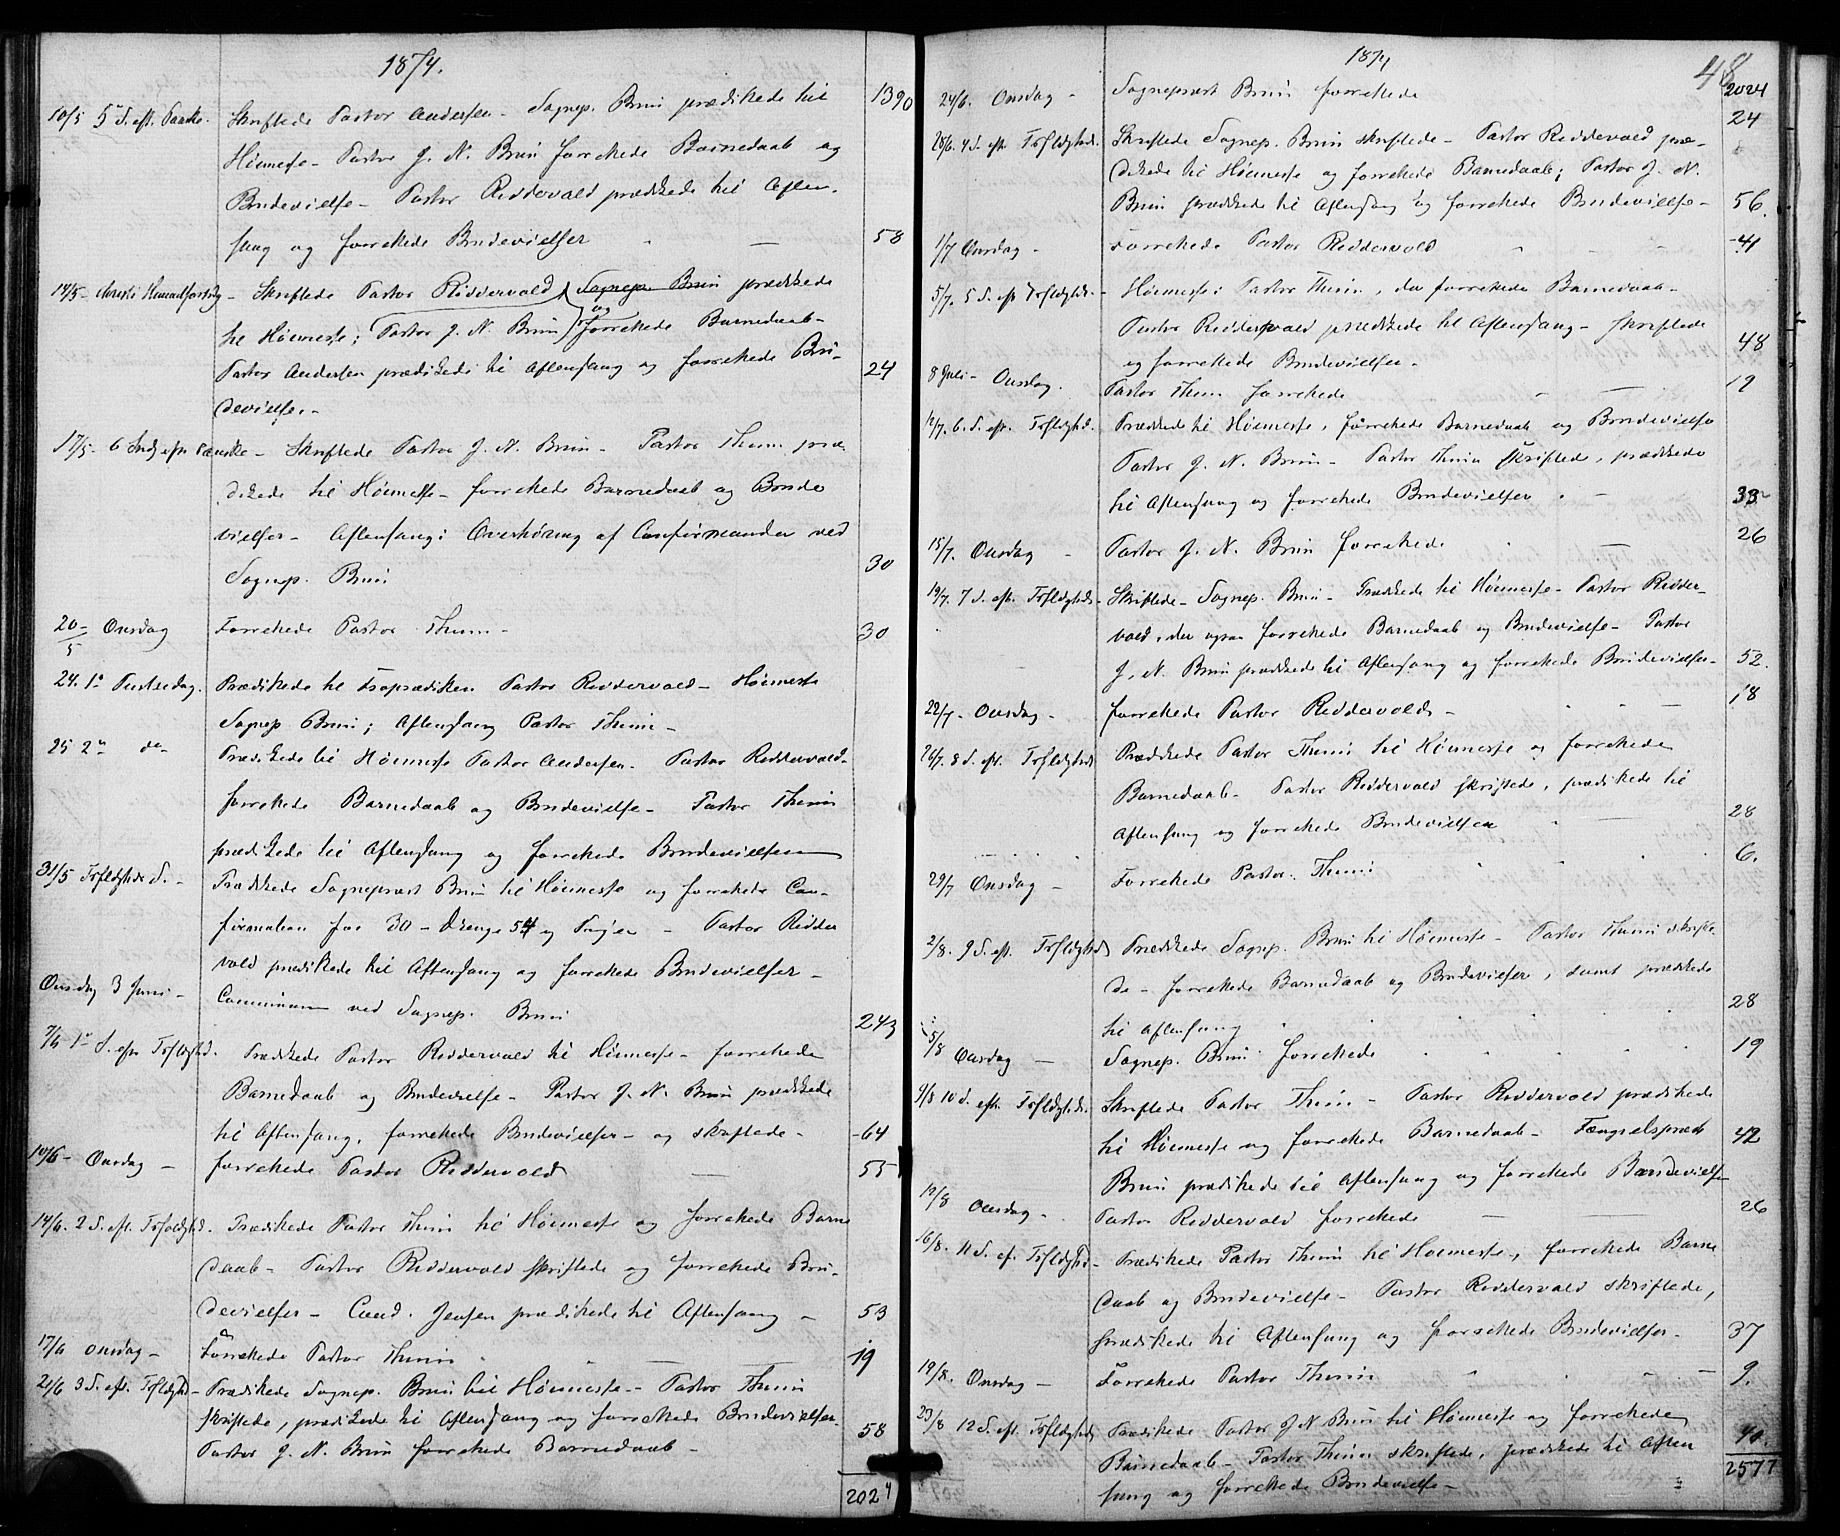 1874.
1390
10/5 5te S. eft. Paaske. Skriftede Pastor Andersen - Sognep. Bruu prædikede til
Høimesse - Pastor J. N. Bruu forrettede Barnedaab og
Brudevielse - Pastor Riddervold prædikede til Aften-
sang og forrettede Brudevielser - 58
14/5 - Christi Himmelfartsdag - Skriftede Pastor Riddervold Sognep. Bruu prædikede
til Høimesse; Pastor J. N. Bruu og forrettede Barnedaab -
Pastor Andersen prædikede til Aftensang og forrettede Bru- 24
devielse. -
17/5 - 6 Sndg eft Paaske - Skriftede Pastor J. N. Bruu - Pastor Thurn præ-
dikede til Høimesse - forrettede Barnedaab og Brude
vielser - Aftensang: Overhøring af Confirmander ved
Sognep. Bruu 30
20/5 - Onsdag Forrettede Pastor Thurn - 30
24. 1e Pintsedag. Prædikede til Froprædiken Pastor Riddervold - Høimesse
Sognep Bruu; Aftensang Pastor Thurn -
25 2n do Prædikede til Høimesse Pastor Andersen - Pastor Riddervold -
forrettede Barnedaab og Brudevielse - Pastor Thurn
prædikede til Aftensang og forrettede Brudevielser
31/5 Trefoldigheds S. - Prædikede Sogneprest Bruu til Høimesse og forrettede Con-
firmation for 30 - Drenge 54 og Piger - Pastor Ridder
vold prædikede til Aftensang og forrettede Brudevielser -
Onsdag 3 Juni - Communion ved Sognep. Bruu 243
7/6 1e S. eft Trefoldighed. Prædikede Pastor Riddervold til Høimesse - forrettede
Barnedaab og Brudevielse - Pastor J. N. Bruu prædikede
til Aftensang, forrettede Brudevielser - og skriftede - 64
10/6 - Onsdag - forrettede Pastor Riddervold - 55
14/6. 2 S. eft. Trefoldighd. Prædikede Pastor Thurn til Høimesse og forrettede Barne
daab - Pastor Riddervold skriftede og forrettede Bru-
devielser - Cand. Jensen prædikede til Aftensang - 53
17/6 Onsdag - Forrettede Pastor Thurn - 19
21/6 3 S. eft. Trefoldighd - Prædikede Sognep. Bruu til Høimesse - Pastor Thurn
skriftede, prædikede til Aftensang og forrettede Brudevielser - 58
Pastor J. N. Bruu forrettede Barnedaab -
2024
1874
48
2024
24/6. Onsdag - Sogneprest Bruu forrettede 24
28/6. 4 S. eft Trefoldighed. Skriftede Sognep. Bruu skriftede - Pastor Riddervold præ-
dikede til Høimesse og forrettede Barnedaab; Pastor J. N.
Bruu prædikede til Aftensang og forrettede Brudevielse - 56.
1/7 Onsdag - Forrettede Pastor Riddervold - 41
5/7. 5 S. eft Trefoldighd. - Høimesse: Pastor Thurn, der forrettede Barnedaab -
Pastor Riddervold prædikede til Aftensang - skriftede
og forrettede Brudevielser - 48
8 Juli - Onsdag. Pastor Thurn forrettede - 12
12/7. 6. S. eft. Trefoldighd. Prædikede til Høimesse, forrettede Barnedaab og Brudevielse
Pastor J. N. Bruu - Pastor Thurn skriftede, prædikede
til Aftensang og forrettede Brudevielser - 33
15/7. Onsdag - Pastor J. N. Bruu forrettede 26
19/7. 7 S. eft. Trefoldigheds - Skriftede - Sognep. Bruu - Prædikede til Høimesse - Pastor Ridder-
vold, der ogsaa forrettede Barnedaab og Brudevielse - Pastor
J. N. Bruu prædikede til Aftensang og forrettede Brudevielser - 52.
22/7 - Onsdag - forrettede Pastor Riddervold - 18
26/7. 8 S. eft. Trefoldighed Prædikede Pastor Thurn til Høimesse og forrettede
Barnedaab - Pastor Riddervold skriftede, prædikede til
Aftensang og forrettede Brudevielser - 28
29/7 Onsdag - Forrettede Pastor Thurn 6.
2/8. 9 S. eft. Trefoldighed Prædikede Sognep. Bruu til Høimesse - Pastor Thurn skrifte
de - forrettede Barnedaab og Brudevielser, samt prædikede
til Aftensang 28
5/8 Onsdag - Sognep. Bruu forrettede 19
9/8 10 S. eft. Trefoldighd. Skriftede Pastor Thurn - Pastor Riddervold prædikede
til Høimesse og forrettede Barnedaab - Fængselsprest 42
Bruu prædikede til Aftensang og forrettede Brudevielser
12/8 Onsdag - Pastor Riddervold forrettede - 26
16/8. 11 S. ef. Trefoldighd - Prædikede Pastor Thurn til Høimesse, forrettede Barne
daab og Brudevielse - Pastor Riddervold skriftede,
prædikede til Aftensang og forrettede Brudevielser - 37
19/8. Onsdag - Forrettede Pastor Thurn - 9.
23/8 12 S. eft. Trefoldighed Prædikede Pastor J N Bruu til Høimesse og forrettede
Barnedaab - Pastor Thurn skriftede, prædikede til Aften 40.
sang og forrettede Brudevielse - 2577